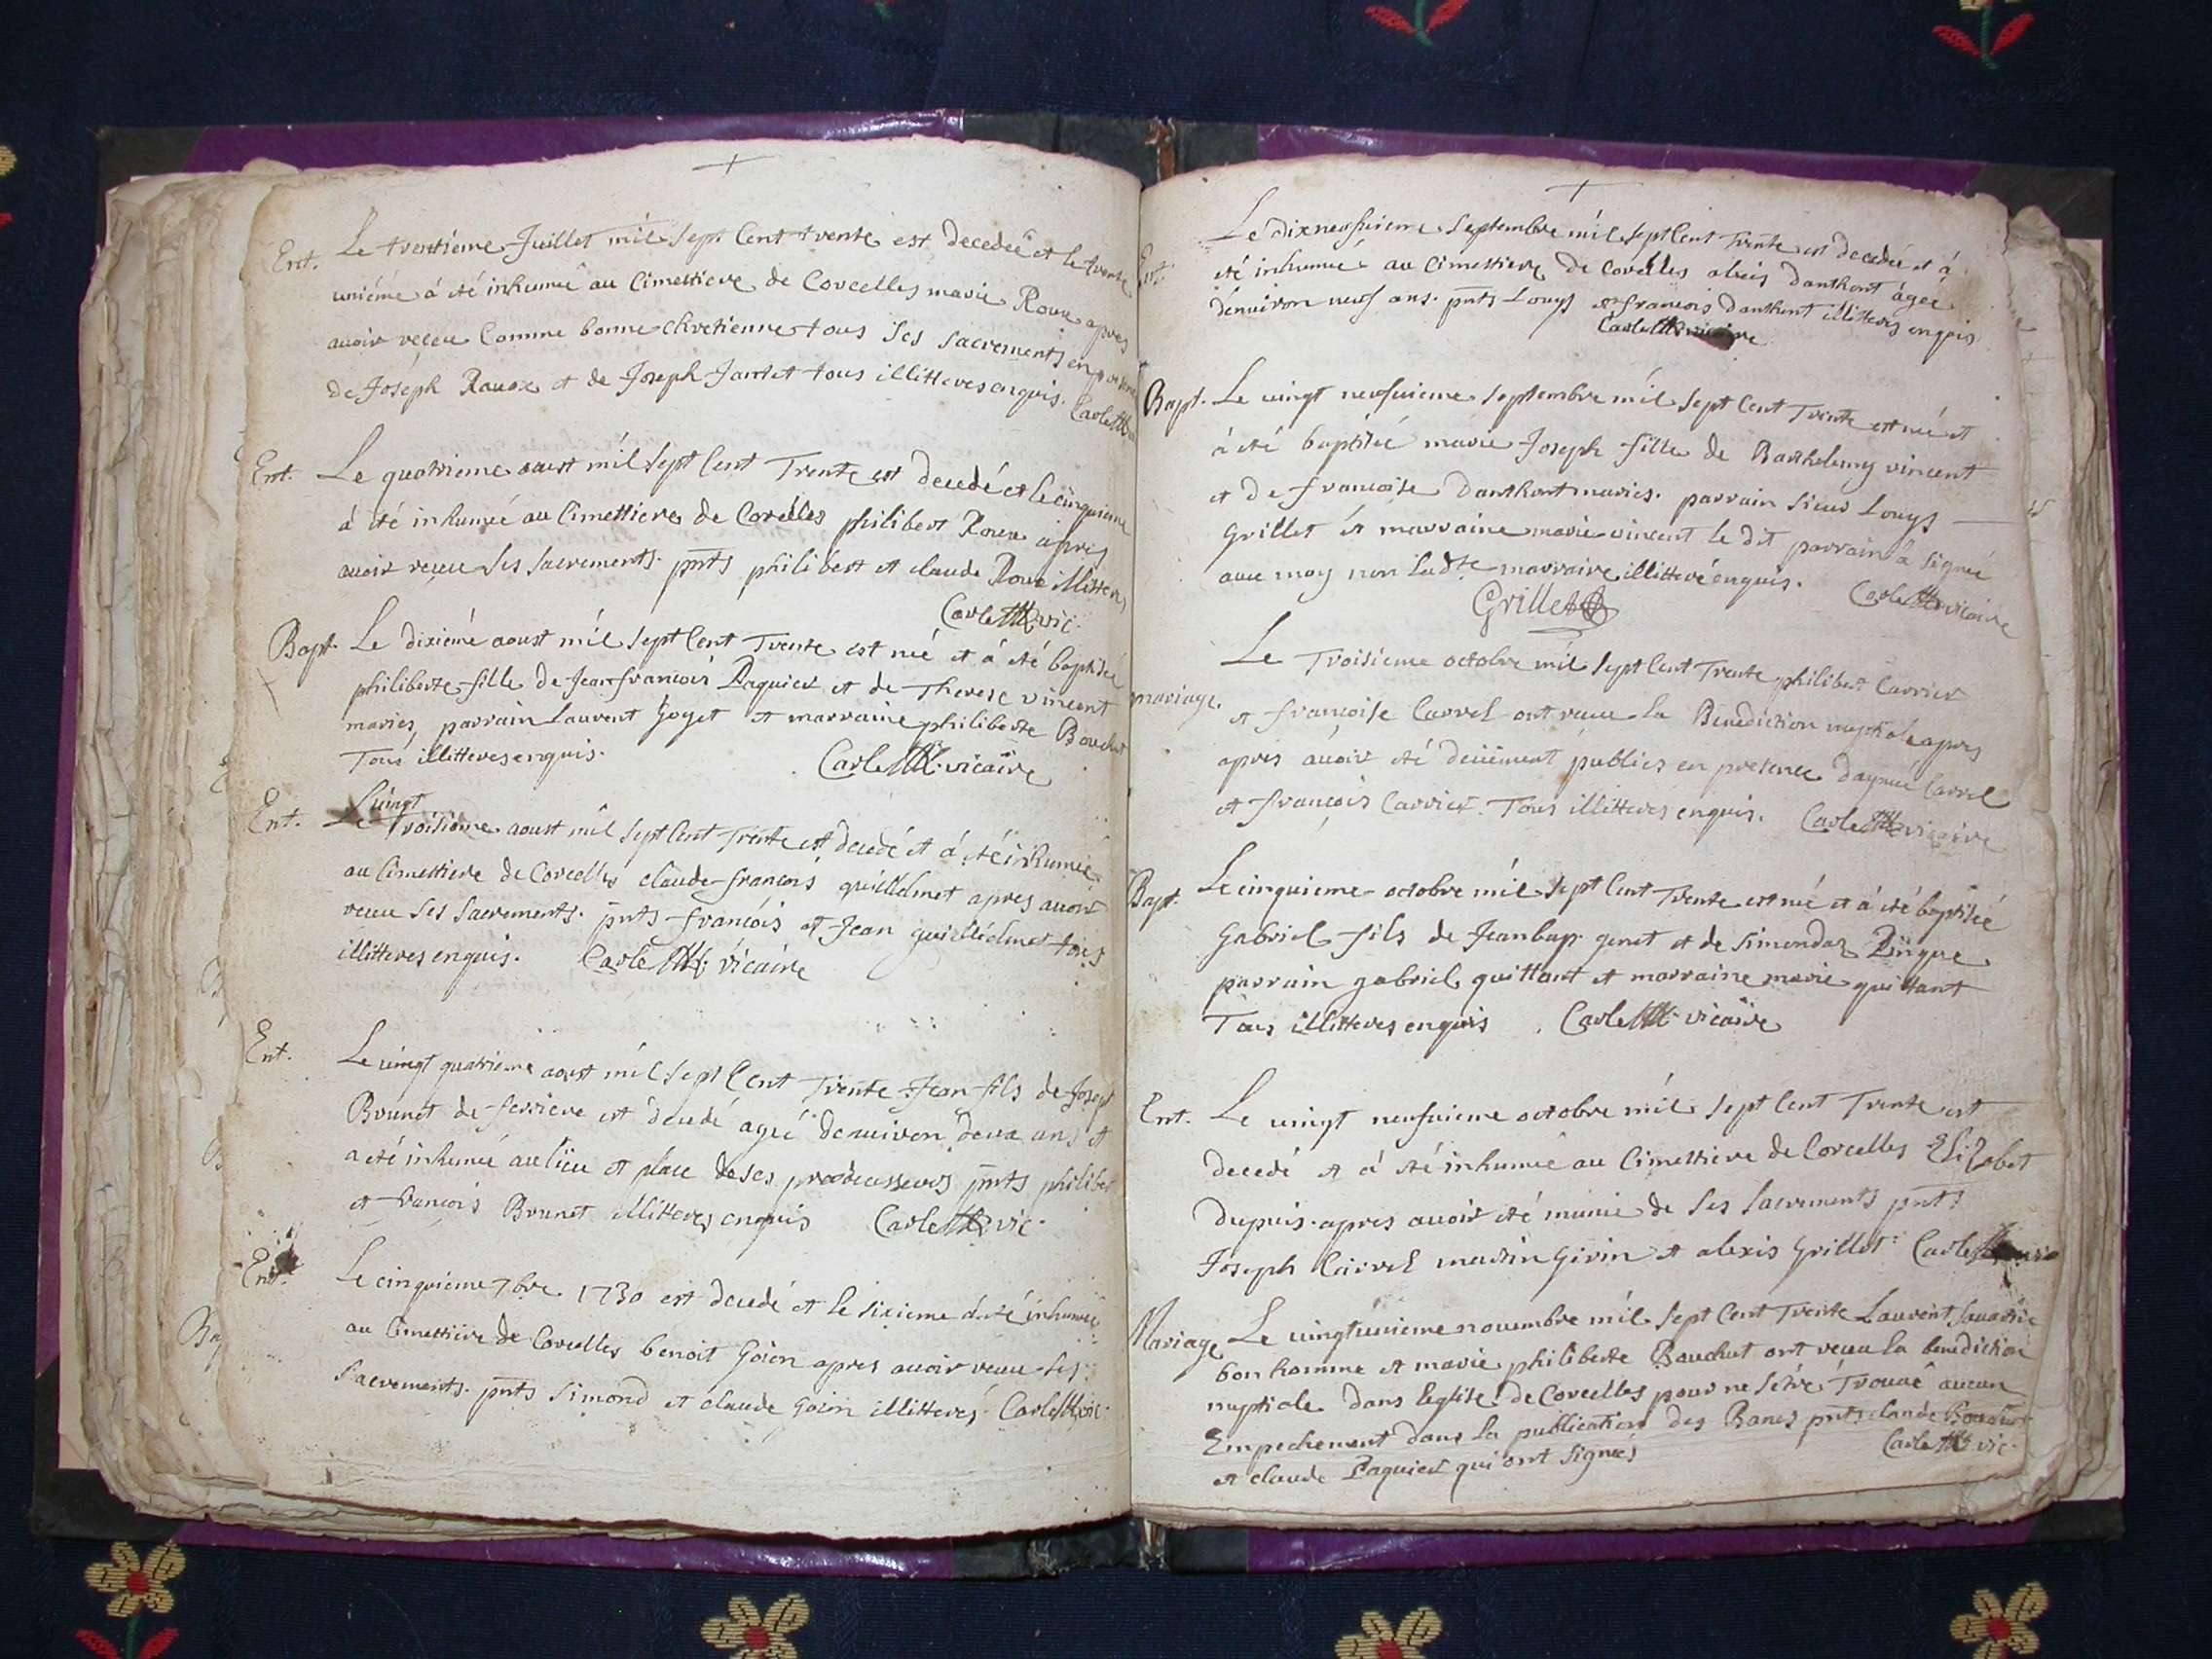 Ent. Le trentieme Juillet mil sept Cent trente est decedeé et le trente
uniéme á été inhumeé au Cimettiere de Corcelles marie Roux apres
auoir reçeu Comme bonne chretienne tous ses sacrements en
de Joseph Rauox et de Joseph Jantet tous illitteres enquis.
Ent. Le quatrieme aoust mil sept Cent Trente est decedé et le cinquieme
á été inhumeé au Cimettiere de Corcelles philibert Roux apres
auoir receu ses sacrements. pnts philibert et claude Roux illitteres
Carle vic.
Bapt. Le dixiemé aoust mil sept Cent Trente est neé et á été baptiseé
philiberte fille de Jean francois Paquier et de Therese vincent
maries, parrain Laurent Goyet et marraine philiberte Bouchut
Tous illitteres enquis. Carle vicaire
vingt
Ent. Le Troisieme aoust mil sept Cent Trente est decedé et á été inhumeé
au Cimettiere de Corcelles claude francois quillielmet apres auoir
receu ses sacrements. pnts francois et Jean quillielmet tous
illitteres enquis. Carle vicaire
Ent. Le vingt quatrieme aoust mil sept Cent Trente Jean fils de Joseph
Brunet de ferriere est decedé ageé denuiron deux ans et
a été inhumeé au lieu et place de ses predecesseurs pnts philibert
et francois Brunet illitteres enquis Carle vic.
Ent. Le cinquieme 7bre 1730 est decedé et le sixieme á été inhumeé
au Cimettiere de Corcelles benoit Goion apres auoir receu ses
sacrements. pnts Simond et claude Goion illitteres. Carle vic.
Ent. Le dixneufuieme septembre mil sept Cent Trente est decedeé et á
été inhumeé au Cimettiere de Corcelles danthont ageé
denuiron neuf ans. pnts Louys et francois danthont illitteres enquis
Carle vicaire
Bapt. Le vingt neufuieme septembre mil sept Cent Trente est neé et
á été baptiseé marie Joseph fille de Barthelemy vincent
et de francoise danthont maries. parrain sieur Louys
Grillet et marraine marie vincent le dit parrain á signeé
auec moy non ladte marraine illitteré enquis. Carle vicaire
Grillet
mariage. Le Troisieme octobre mil sept Cent Trente philibert Carrier
et francoise Carrel ont receu la Benediction nuptiale apres
apres auoir été deüement publies en presence daymé Carrel
et francois Carrier. Tous illitteres enquis. Carle vicaire
Bapt. Le cinquieme octobre mil sept Cent Trente est né et á été baptiseé
Gabriel fils de Jean bap. genet et de simondaz Pingue
parrain gabriel quittant et marraine marie quittant
Tous illitteres enquis. Carle vicaire
Ent. Le vingt neufuieme octobre mil sept Cent Trente est
decedé et á été inhumeé au Cimettiere de Corcelles Elizabet
dupuis. apres auoir été munie de ses sacrements pnts
Joseph Carrel martin Girin et alexis Grillet. Carle
Mariage Le vingtunieme nouembre mil sept Cent Trente Laurent sauarin
bon homme et marie philiberte Bouchut ont receu la benediction
nuptiale dans leglise de Corcelles pour ne sétre Trouué aucun
Empechement dans la publication des Bancs pnts claude Bouchut
et claude Paquier qui ont signes Carle vic.